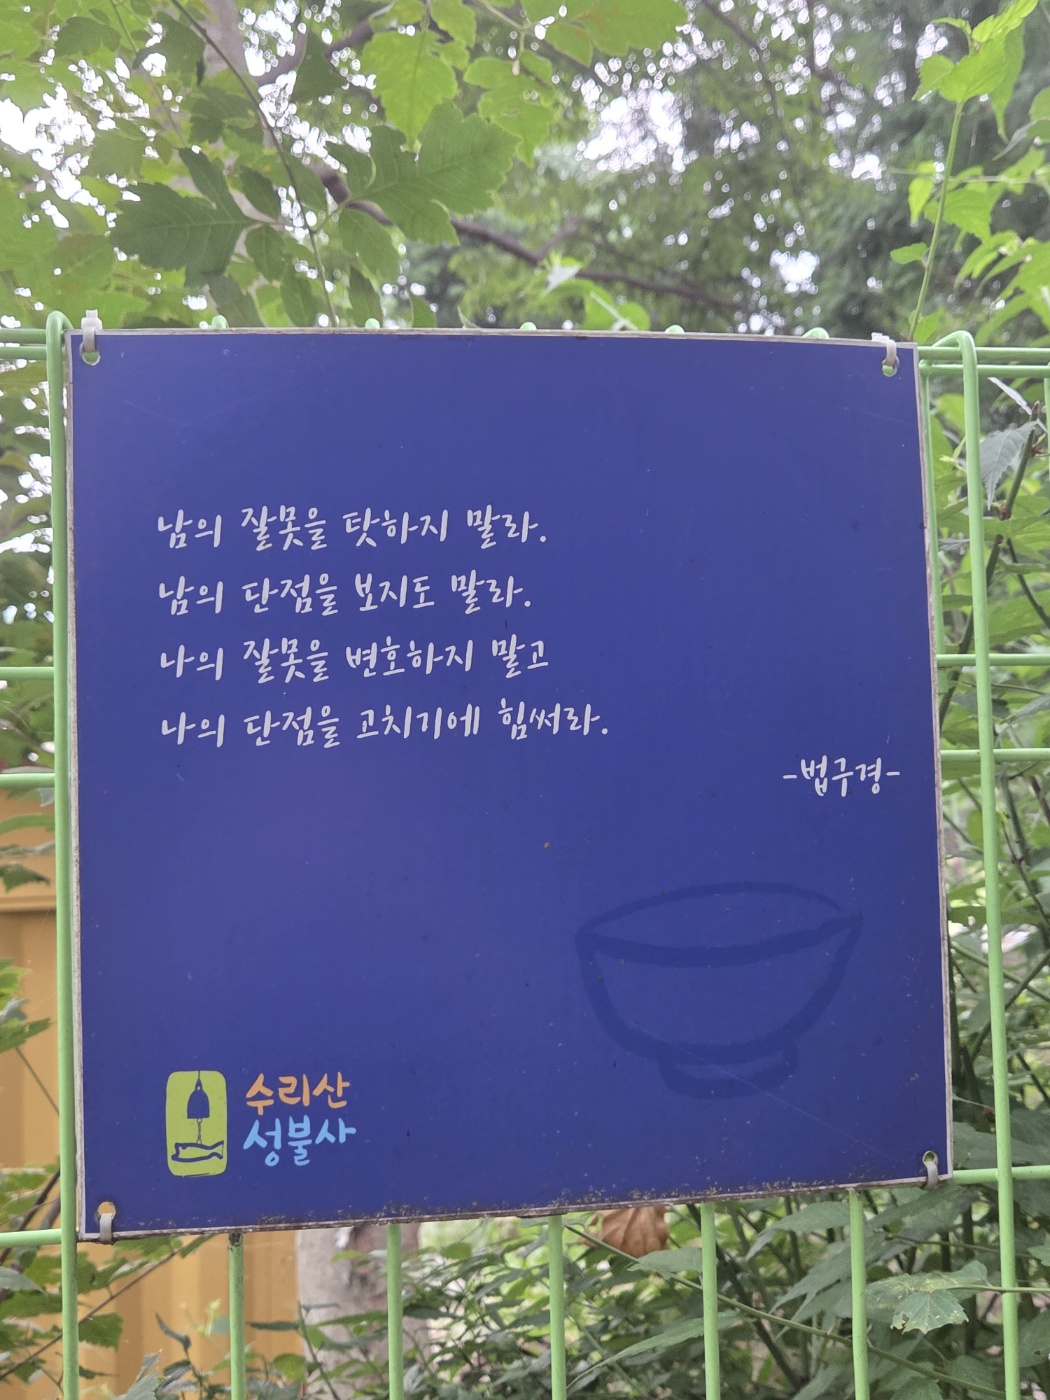 남의 잘못을 탓하지 말라.
남의 단점을 보지도 말라.
나의 잘못을 변호하지 말고
나의 단점을 고치기에 힘써라.
-법구경-
수리산
성불사